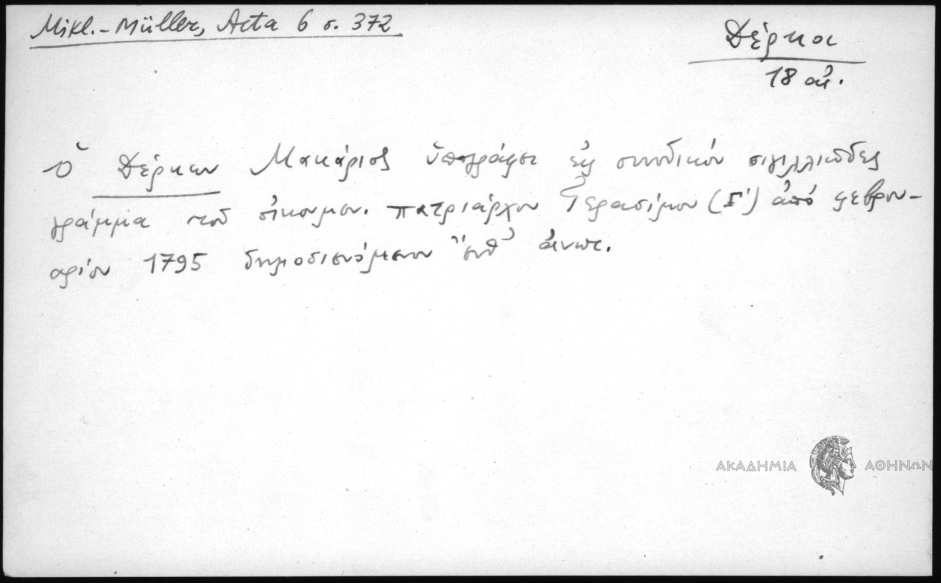 Mikl.-Müller, Acta 6 σ. 372
Δέρκοι
18 αἰ.
Ὁ Δέρκων Μακάριος ὑπογράφει εἰς συνοδικόν σιγιλλιῶδες
γράμμα τοῦ οἰκουμεν. πατριάρχου Γερασίμου (Γ΄) ἀπό φεβρου-
αρίου 1795 δημοσιευόμενον ἔνθ᾽ ἀνωτ.
ΑΚΑΔΗΜΙΑ ΑΘΗΝΩΝ